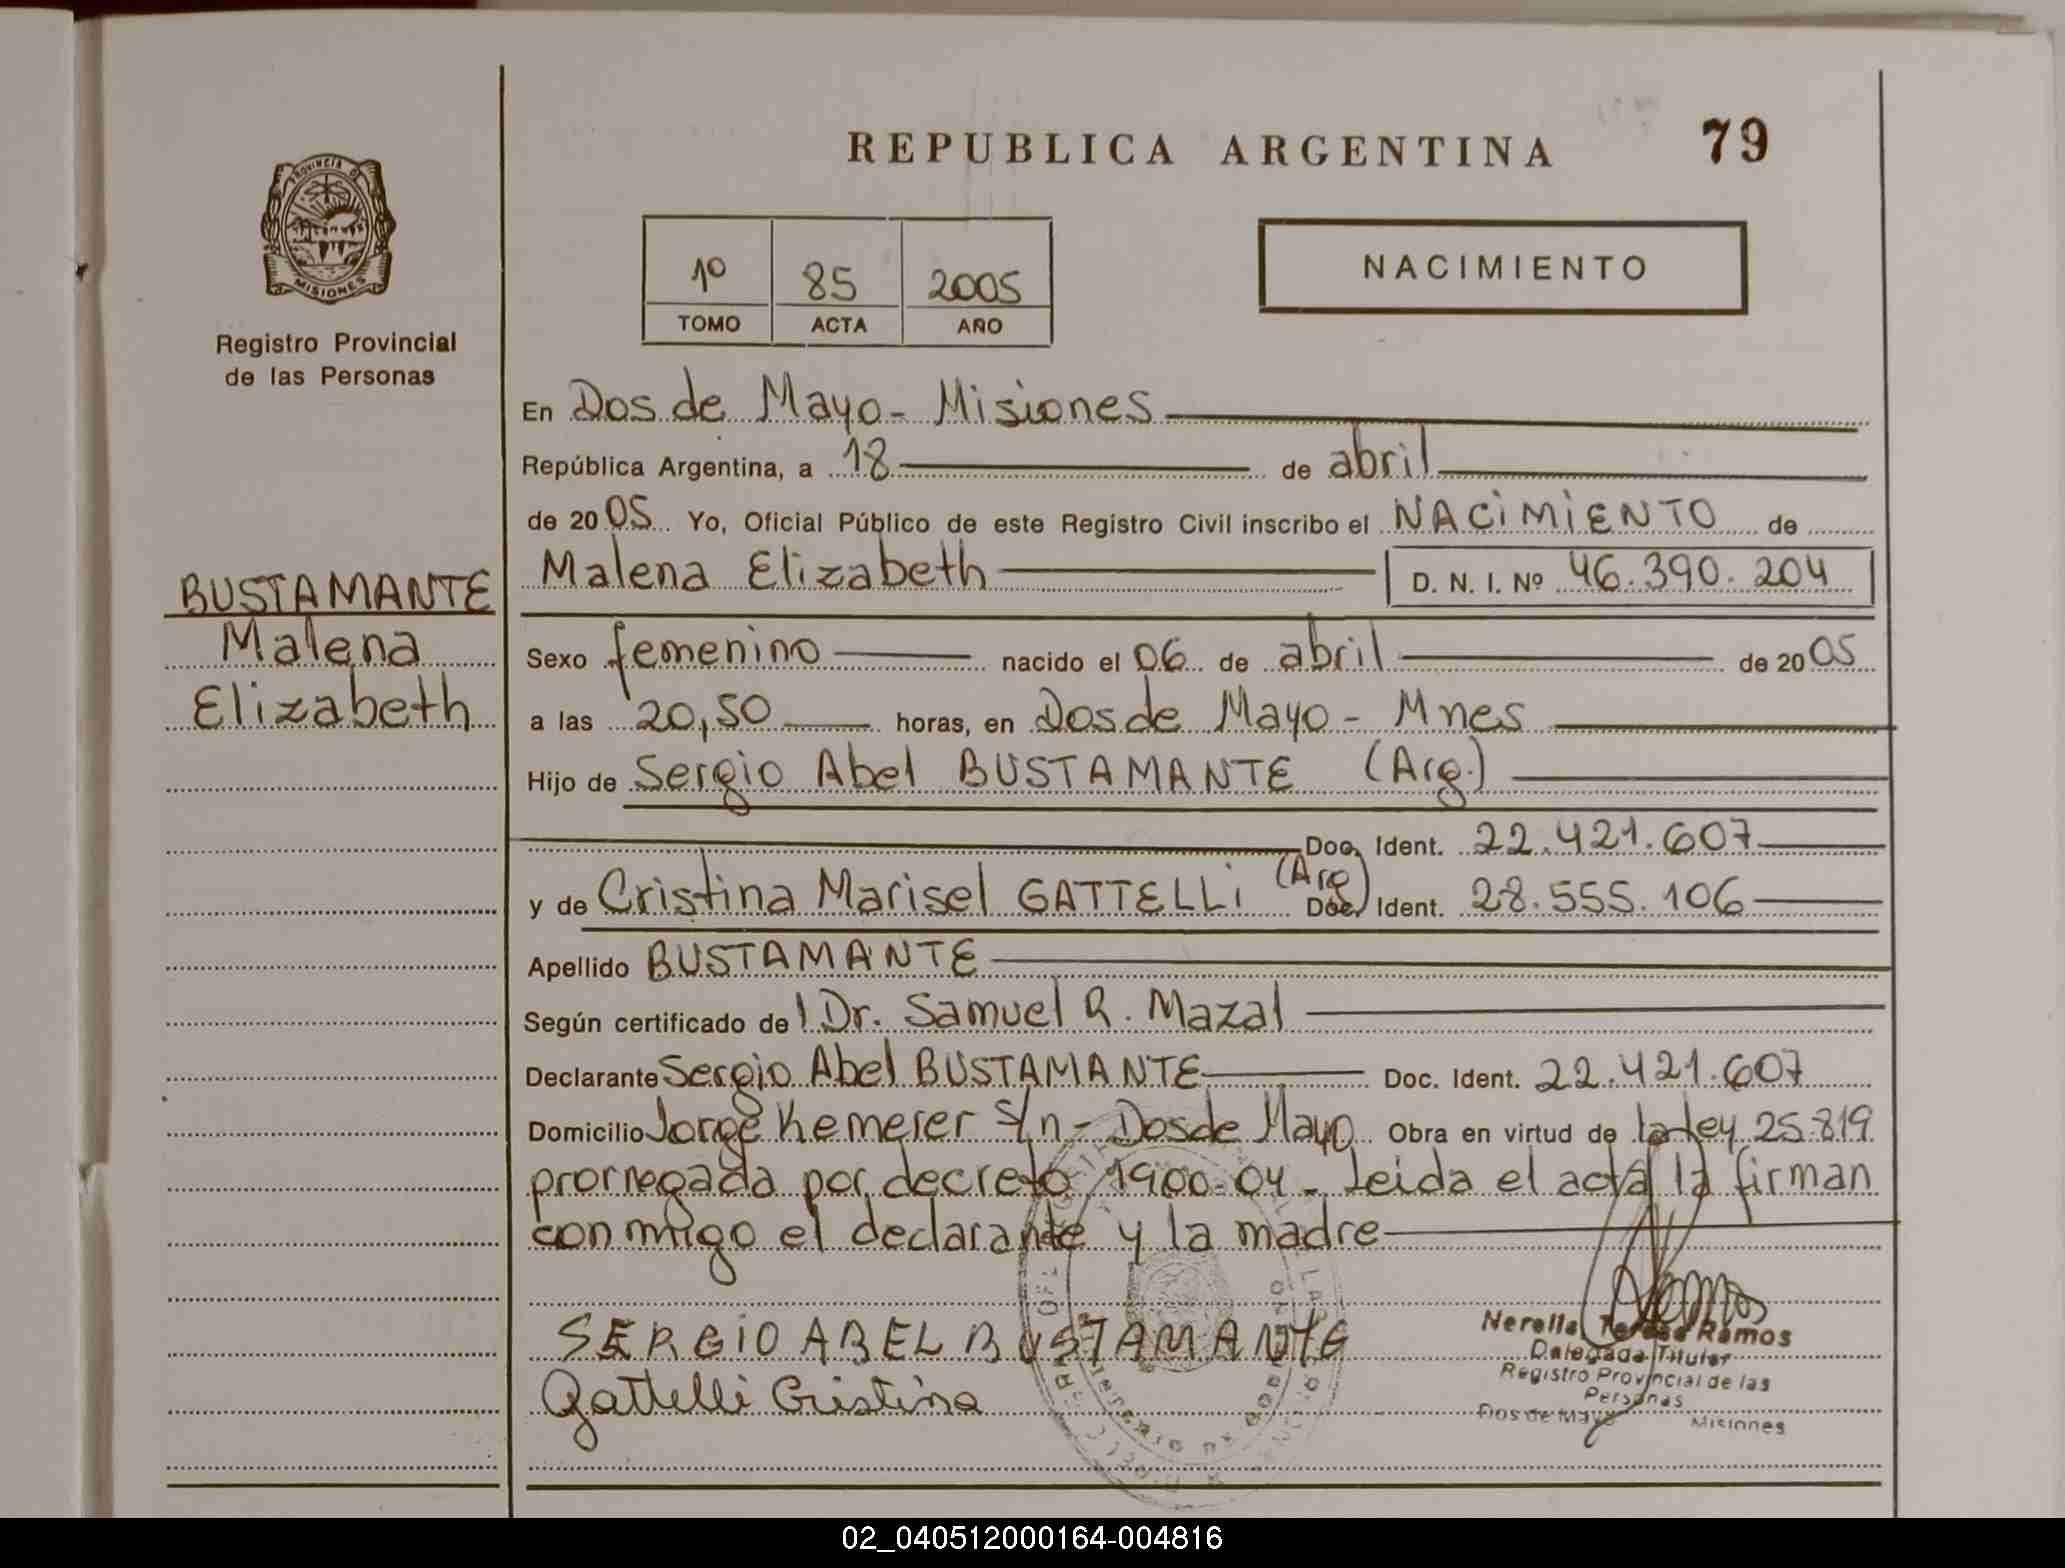 REPUBLICA ARGENTINA 79
PROVINCIA DE
MISIONES
Registro Provincial
de las Personas
1º 85 2005
TOMO ACTA AÑO
NACIMIENTO
En Dos de Mayo - Misiones
República Argentina, a 18 de abril
de 2005 Yo, Oficial Público de este Registro Civil inscribo el NACIMIENTO de
BUSTAMANTE
Malena
Elizabeth
Malena Elizabeth D. N. I. Nº 46.390.204
Sexo femenino nacido el 06 de abril de 2005
a las 20,50 horas, en Dos de Mayo - Mnes
Hijo de Sergio Abel BUSTAMANTE (Arg.)
Doc. Ident. 22.421.607
y de Cristina Marisel GATTELLI (Arg) Doc. Ident. 28.555.106
Apellido BUSTAMANTE
Según certificado del Dr. Samuel R. Mazal
Declarante Sergio Abel BUSTAMANTE Doc. Ident. 22.421.607
Domicilio Jorge Kemerer S/n - Dos de Mayo Obra en virtud de la ley 25.819
prorrogada por decreto 1900-04 - Leida el acta la firman
conmigo el declarante y la madre
SERGIO ABEL BUSTAMANTE
Gattelli Cristina
Nerella Teresa Ramos
Delegada Titular
Registro Provincial de las
Personas
Dos de Mayo Misiones
02_040512000164-004816